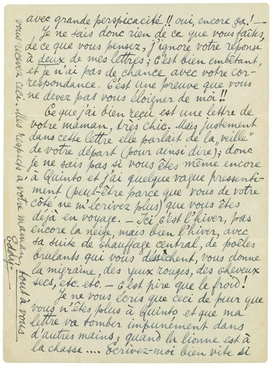 avec grande perspicacité!! oui, encore ça!—
Je ne sais donc rien de ce que vous faîtes,
de ce que vous pensez, j'ignore votre réponse
à deux de mes lettres; C'est bien embêtant,
et je n'ai pas de chance avec votre cor-
respondance. C'est une preuve que vous
ne devez pas vous éloigner de moi!!
Ce que j'ai bien reçu est une lettre de
votre maman, très chic. Mais justement
dans cette lettre elle parlait de la "veille"
de votre départ (pour ainsi dire); donc
je ne sais pas si vous êtes même encore
à Quinto et j'ai quelque vague pressenti-
ment (peut-être parce que vous de votre
côté ne m'écrivez plus) que vous êtes
déjà en voyage. — Ici c'est l'hiver, pas
encore la neige, mais bien l'hiver, avec
sa suite de chauffage central, de poêles
brulants qui vous dessèchent, vous donne
la migraine, des yeux rouges, des cheveux
secs, etc. etc. — C'est pire que le froid!
Je ne vous écris que ceci de peur que
vous n'êtes plus à Quinto et que ma
lettre va tomber impunement dans
d'autres mains; quand la lionne est à
la chasse.... Écrivez-moi bien vite si
vous recevez ceci. Mes respects à votre maman, tout à vous